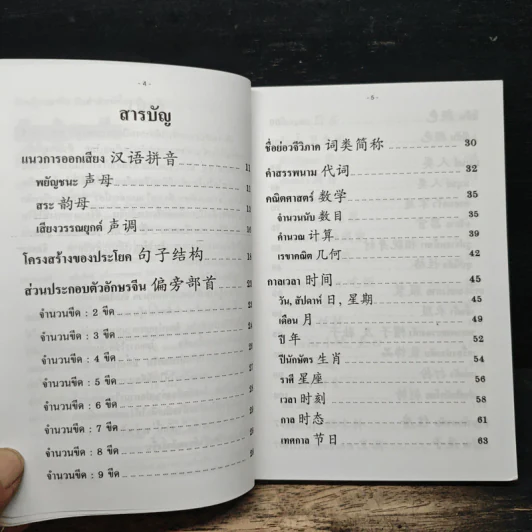 - 4 -
สารบัญ
แนวการออกเสียง 汉语拼音
พยัญชนะ 声母
สระ 韵母
เสียงวรรณยุกต์ 声调
โครงสร้างของประโยค 句子结构
ส่วนประกอบตัวอักษรจีน 偏旁部首
จำนวนขีด : 2 ขีด
จำนวนขีด : 3 ขีด
จำนวนขีด : 4 ขีด
จำนวนขีด : 5 ขีด
จำนวนขีด : 6 ขีด
จำนวนขีด : 7 ขีด
จำนวนขีด : 8 ขีด
จำนวนขีด : 9 ขีด
- 5 -
ชื่อย่อวจีวิภาค 词类简称 30
คำสรรพนาม 代词 32
คณิตศาสตร์ 数学 35
จำนวนนับ 数目 35
คำนวณ 计算 39
เรขาคณิต 几何 42
กาลเวลา 时间 45
วัน, สัปดาห์ 日, 星期 45
เดือน 月 49
ปี 年 52
ปีนักษัตร 生肖 54
ราศี 星座 56
เวลา 时刻 58
กาล 时态 61
เทศกาล 节日 63